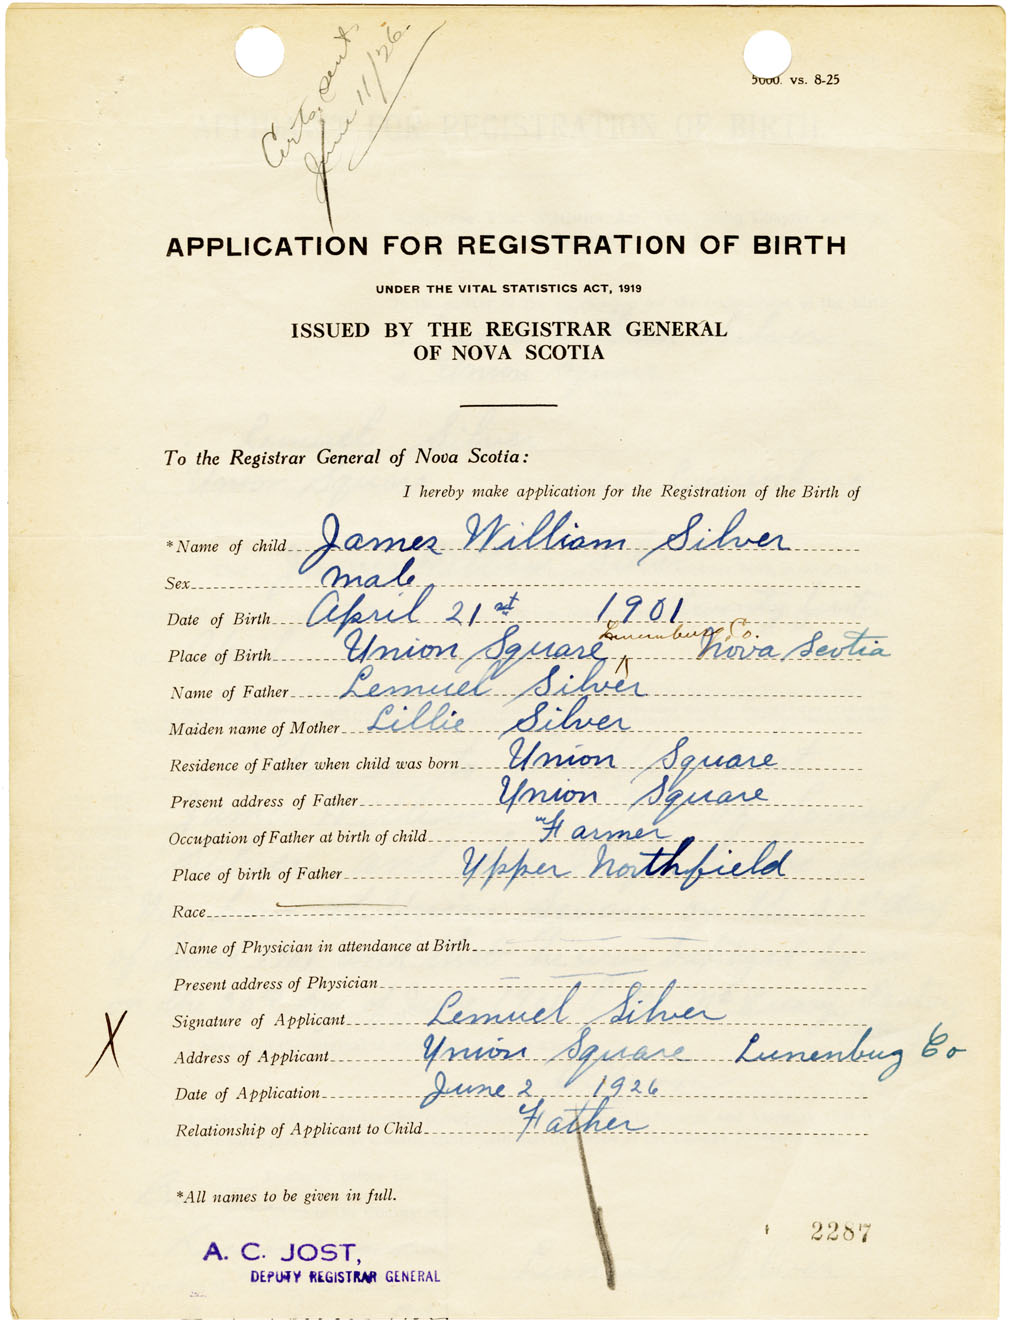 Certs. sent
June 11/26.
5000. vs. 8-25
APPLICATION FOR REGISTRATION OF BIRTH
UNDER THE VITAL STATISTICS ACT, 1919
ISSUED BY THE REGISTRAR GENERAL
OF NOVA SCOTIA
To the Registrar General of Nova Scotia:
I hereby make application for the Registration of the Birth of
*Name of child James William Silver
Sex male
Date of Birth April 21st 1901
Lunenburg Co.
Place of Birth Union Square Nova Scotia
Name of Father Lemuel Silver
Maiden name of Mother Lillie Silver
Residence of Father when child was born Union Square
Present address of Father Union Square
Occupation of Father at birth of child Farmer
Place of birth of Father Upper Northfield
Race
Name of Physician in attendance at Birth
Present address of Physician
Signature of Applicant Lemuel Silver
X
Address of Applicant Union Square Lunenbug Co
Date of Application June 2 1926
Relationship of Applicant to Child Father
*All names to be given in full.
2287
A. C. JOST,
DEPUTY REGISTRAR GENERAL